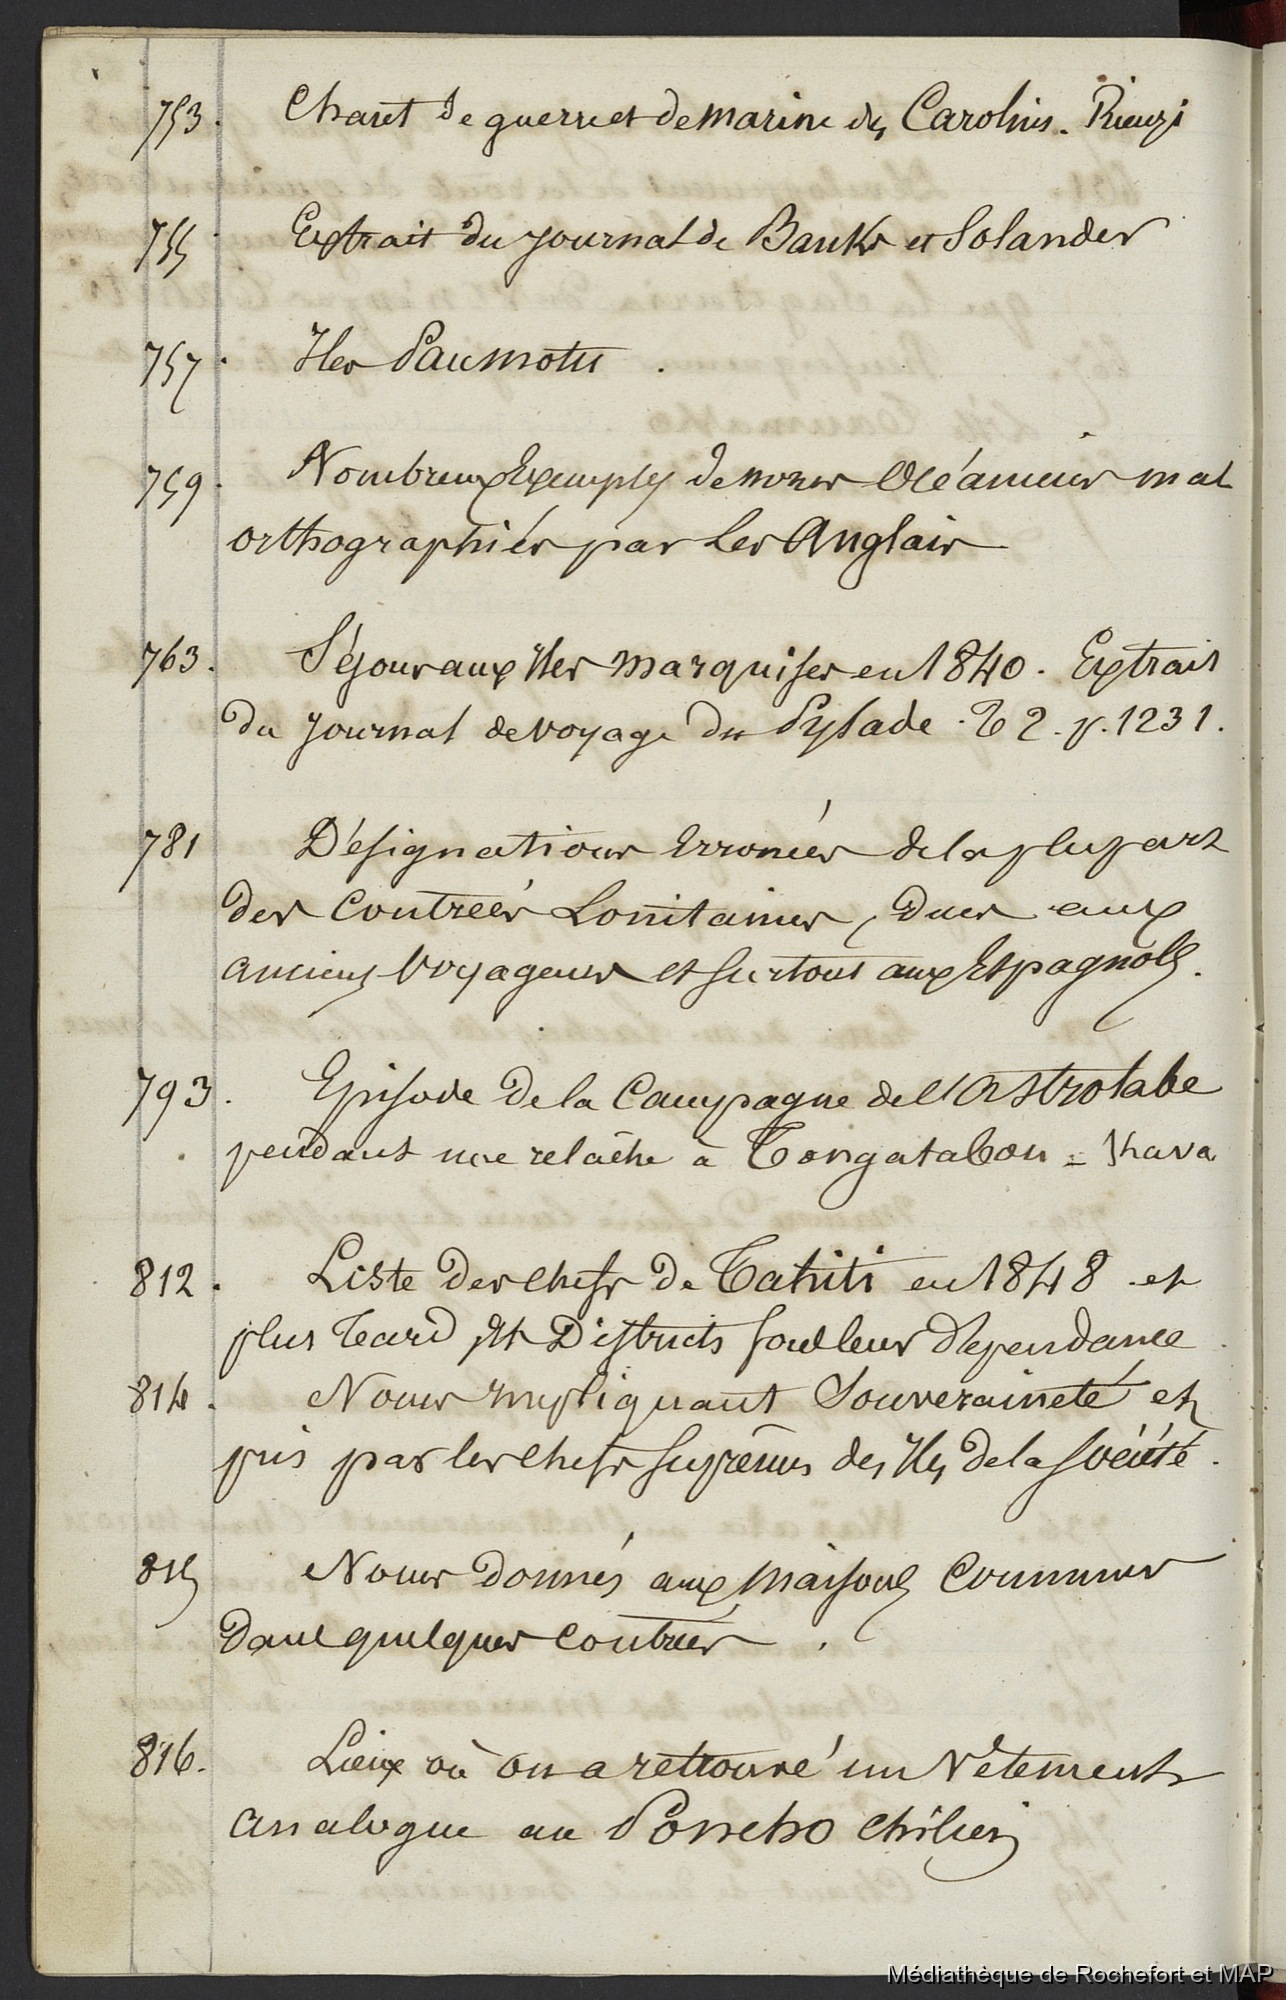 753. Chant de guerre et de marine des Carolins. Rienzi
755 Extrait du journal de Banks et Solander
757. Iles Paumotu.
759. Nombreux Exemples de noms Océaniens mal
orthographiés par les Anglais
763. Séjour aux Iles Marquises en 1840. Extrait
du journal de voyage du Pylade. T 2. p. 1231.
781 Désignations Erronées de la plupart
des Contrées Lointaines, dues aux
anciens Voyageurs et surtout aux Espagnols.
793. Episode de la Campagne de l'Astrolabe
pendant une relâche à Tongatabou = Kava
812. Liste des chefs de Tahiti en 1848 et
plus Tard Et Districts sous leur dépendance.
814. Noms impliquant Souveraineté et
pris par les chefs suprêmes des Iles de la Société.
815 Noms donnés aux Maisons Communes
dans quelques Contrées.
816. Lieux où on a retrouvé un Vêtement
analogue au Poncho chilien
Médiathèque de Rochefort et MAP